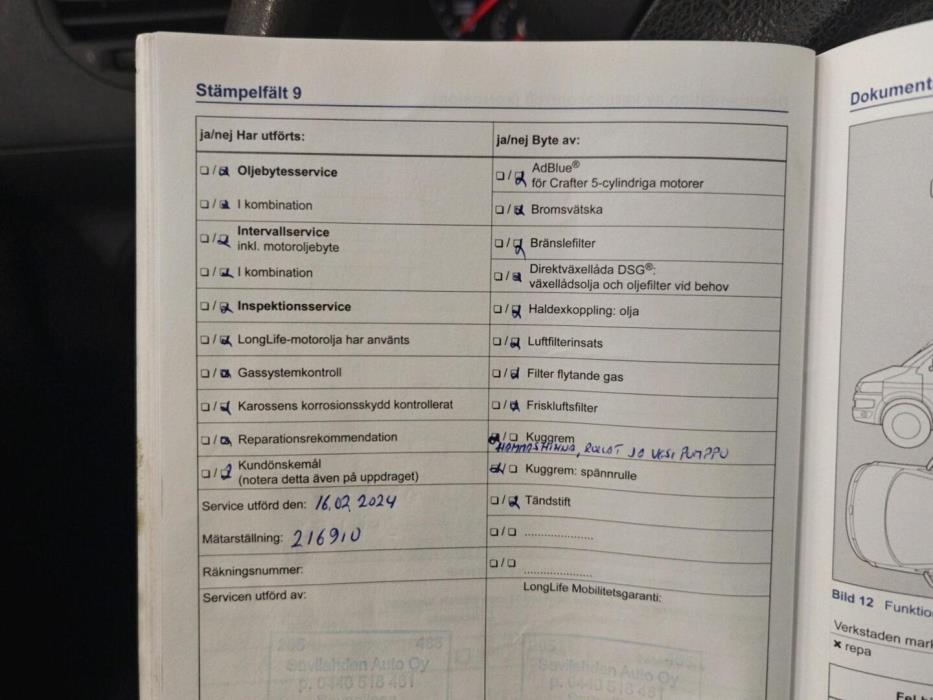 Stämpelfält 9
ja/nej Har utförts:
☐ / ☑ Oljebytesservice
☐ / ☑ I kombination
☐ / ☑ Intervallservice
inkl. motoroljebyte
☐ / ☑ I kombination
☐ / ☑ Inspektionsservice
☐ / ☑ LongLife-motorolja har använts
☐ / ☑ Gassystemkontroll
☐ / ☑ Karossens korrosionsskydd kontrollerat
☐ / ☑ Reparationsrekommendation
☐ / ☑ Kundönskemål
(notera detta även på uppdraget)
Service utförd den: 16.02 2024
Mätarställning: 216910
Räkningsnummer:
Servicen utförd av:
ja/nej Byte av:
☐ / ☑ AdBlue®
för Crafter 5-cylindriga motorer
☐ / ☑ Bromsvätska
☐ / ☑ Bränslefilter
☐ / ☑ Direktväxellåda DSG®:
växellådsolja och oljefilter vid behov
☐ / ☑ Haldexkoppling: olja
☐ / ☑ Luftfilterinsats
☐ / ☑ Filter flytande gas
☐ / ☑ Friskluftsfilter
☑ / ☐ Kuggrem
HAMMASHIHNA, RULLAT JA VESI PUMPPU
☑ / ☐ Kuggrem: spännrulle
☐ / ☑ Tändstift
☐ / ☐ ......................
☐ / ☐ ......................
LongLife Mobilitetsgaranti:
Savilahden Auto Oy
Dokument
Bild 12 Funktio
Verkstaden mark
× repa